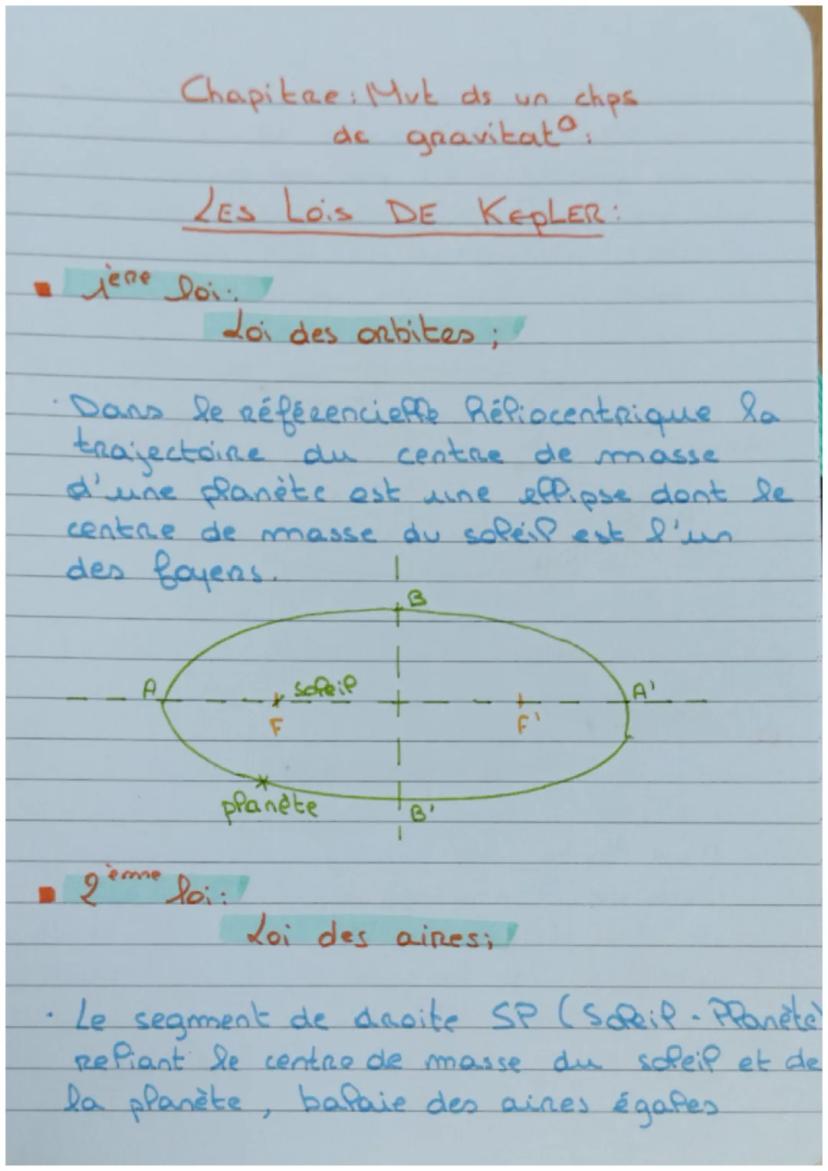 Chapitre : Mvt ds un chps
de gravitat° :
LES LOIS DE KEPLER :
1ère loi :
Loi des orbites ;
· Dans le référencielle héliocentrique la
trajectoire du centre de masse
d'une planète est une ellipse dont le
centre de masse du soleil est l'un
des foyers.
B
A soleil A'
F F'
planète B'
2ème loi :
Loi des aires ;
· Le segment de droite SP (Soleil - Planète)
reliant le centre de masse du soleil et de
la planète, balaie des aires égales